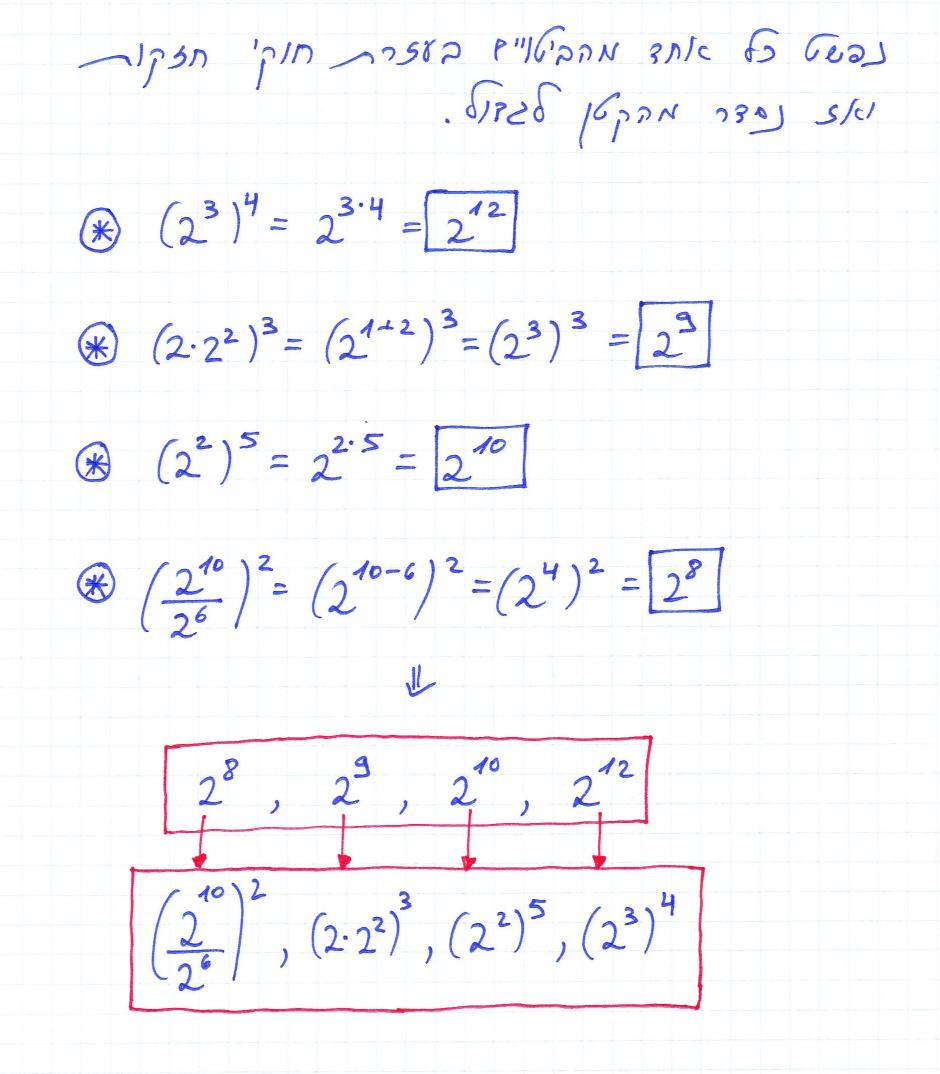 נפשט כל אחד מהביטויים בעזרת חוקי חזקות
ואז נסדר מהקטן לגדול.
⊛ (2³)⁴ = 2³·⁴ = 2¹²
⊛ (2·2²)³ = (2¹⁺²)³ = (2³)³ = 2⁹
⊛ (2²)⁵ = 2²·⁵ = 2¹⁰
⊛ (2¹⁰/2⁶)² = (2¹⁰⁻⁶)² = (2⁴)² = 2⁸
⇓
2⁸ , 2⁹ , 2¹⁰ , 2¹²
(2¹⁰/2⁶)² , (2·2²)³ , (2²)⁵ , (2³)⁴